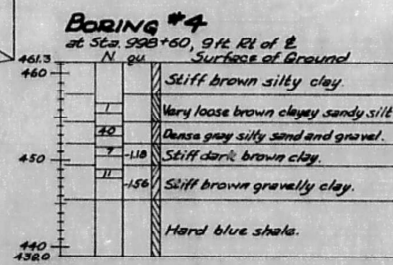 BORING #4
at Sta. 998+60, 9ft Rt of ℄
N qu. Surface of Ground
461.3
460
Stiff brown silty clay.
1 Very loose brown clayey sandy silt
40 Dense gray silty sand and gravel.
450 7 -1.18 Stiff dark brown clay.
11 -1.56 Stiff brown gravelly clay.
Hard blue shale.
440